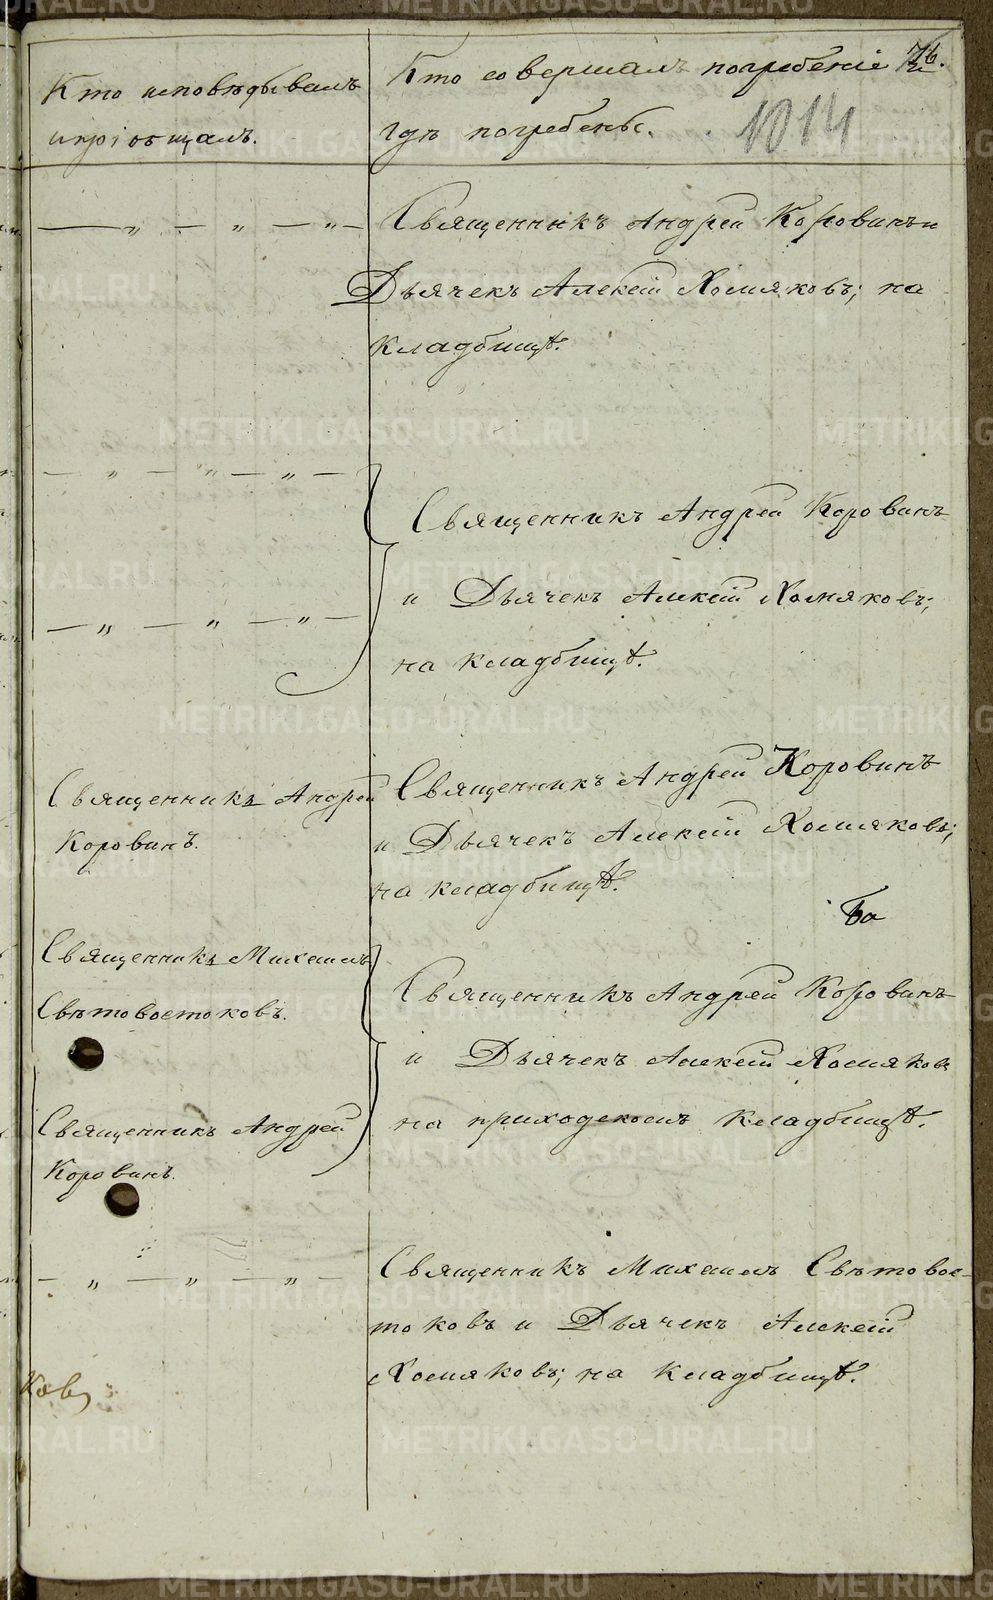 Кто исповѣдывалъ
и пріобщалъ.
Кто совершалъ погребеніе и
гдѣ погребены.
76.
1014
Священникъ Андрей Коровинъ и
Дьячекъ Алексій Хомяковъ; на
кладбищѣ.
Священникъ Андрей Коровинъ
и Дьячекъ Алексій Хомяковъ;
на кладбищѣ.
Священникъ Андрей
Коровинъ.
Священникъ Андрей Коровинъ
и Дьячекъ Алексій Хомяковъ;
на кладбищѣ.
Священникъ Михаилъ
Свѣтовостоковъ.
Священникъ Андрей
Коровинъ.
Священникъ Андрей Коровинъ
и Дьячекъ Алексій Хомяковъ
на приходскомъ кладбищѣ.
Священникъ Михаилъ Свѣтовос-
токовъ и Дьячекъ Алексій
Хомяковъ; на кладбищѣ.
METRIKI.GASO-URAL.RU